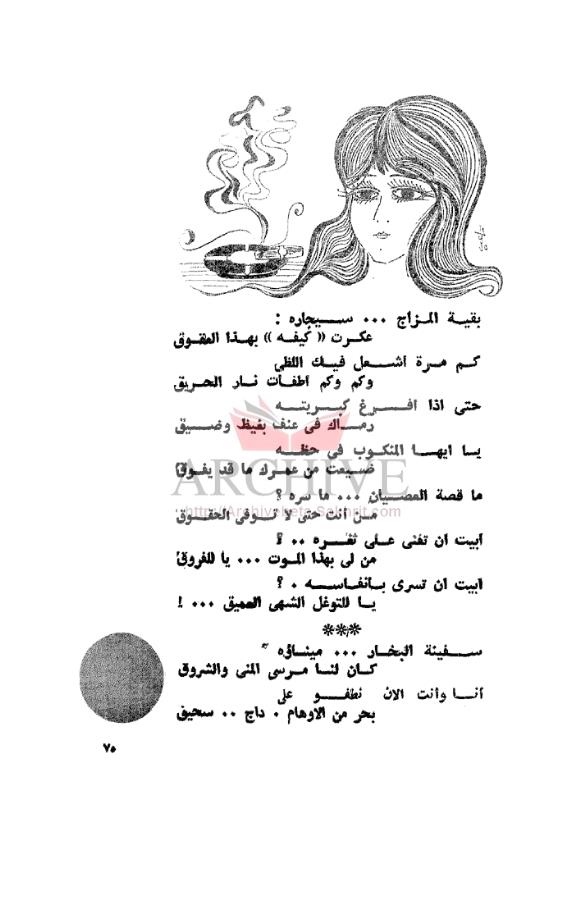 بقية المزاج ... سيجاره :
عكرت « كيفه » بهذا العقوق
كم مرة أشعل فيك اللظى
وكم وكم اطفات نار الحريق
حتى اذا افرغ كبريته
رماك فى عنف بغيظ وضيق
يا ايها المنكوب فى حظه
ضيعت من عمرك ما قد يفوق
ARCHIVE
ما قصة العصيان ... ما سره ؟
http://Archivebeta.Sakhrit.com
من أنت حتى لا توفى الحقوق
ابيت ان تفنى على ثغره .. ؟
من لى بهذا الموت ... يا للفروق
ابيت ان تسرى بانفاسه . ؟
يا للتوغل الشهى العميق ... !
***
سفينة البخار ... ميناؤه
كان لنا مرسى المنى والشروق
أنا وانت الان نطفو على
بحر من الاوهام . داج .. سحيق
٧٥